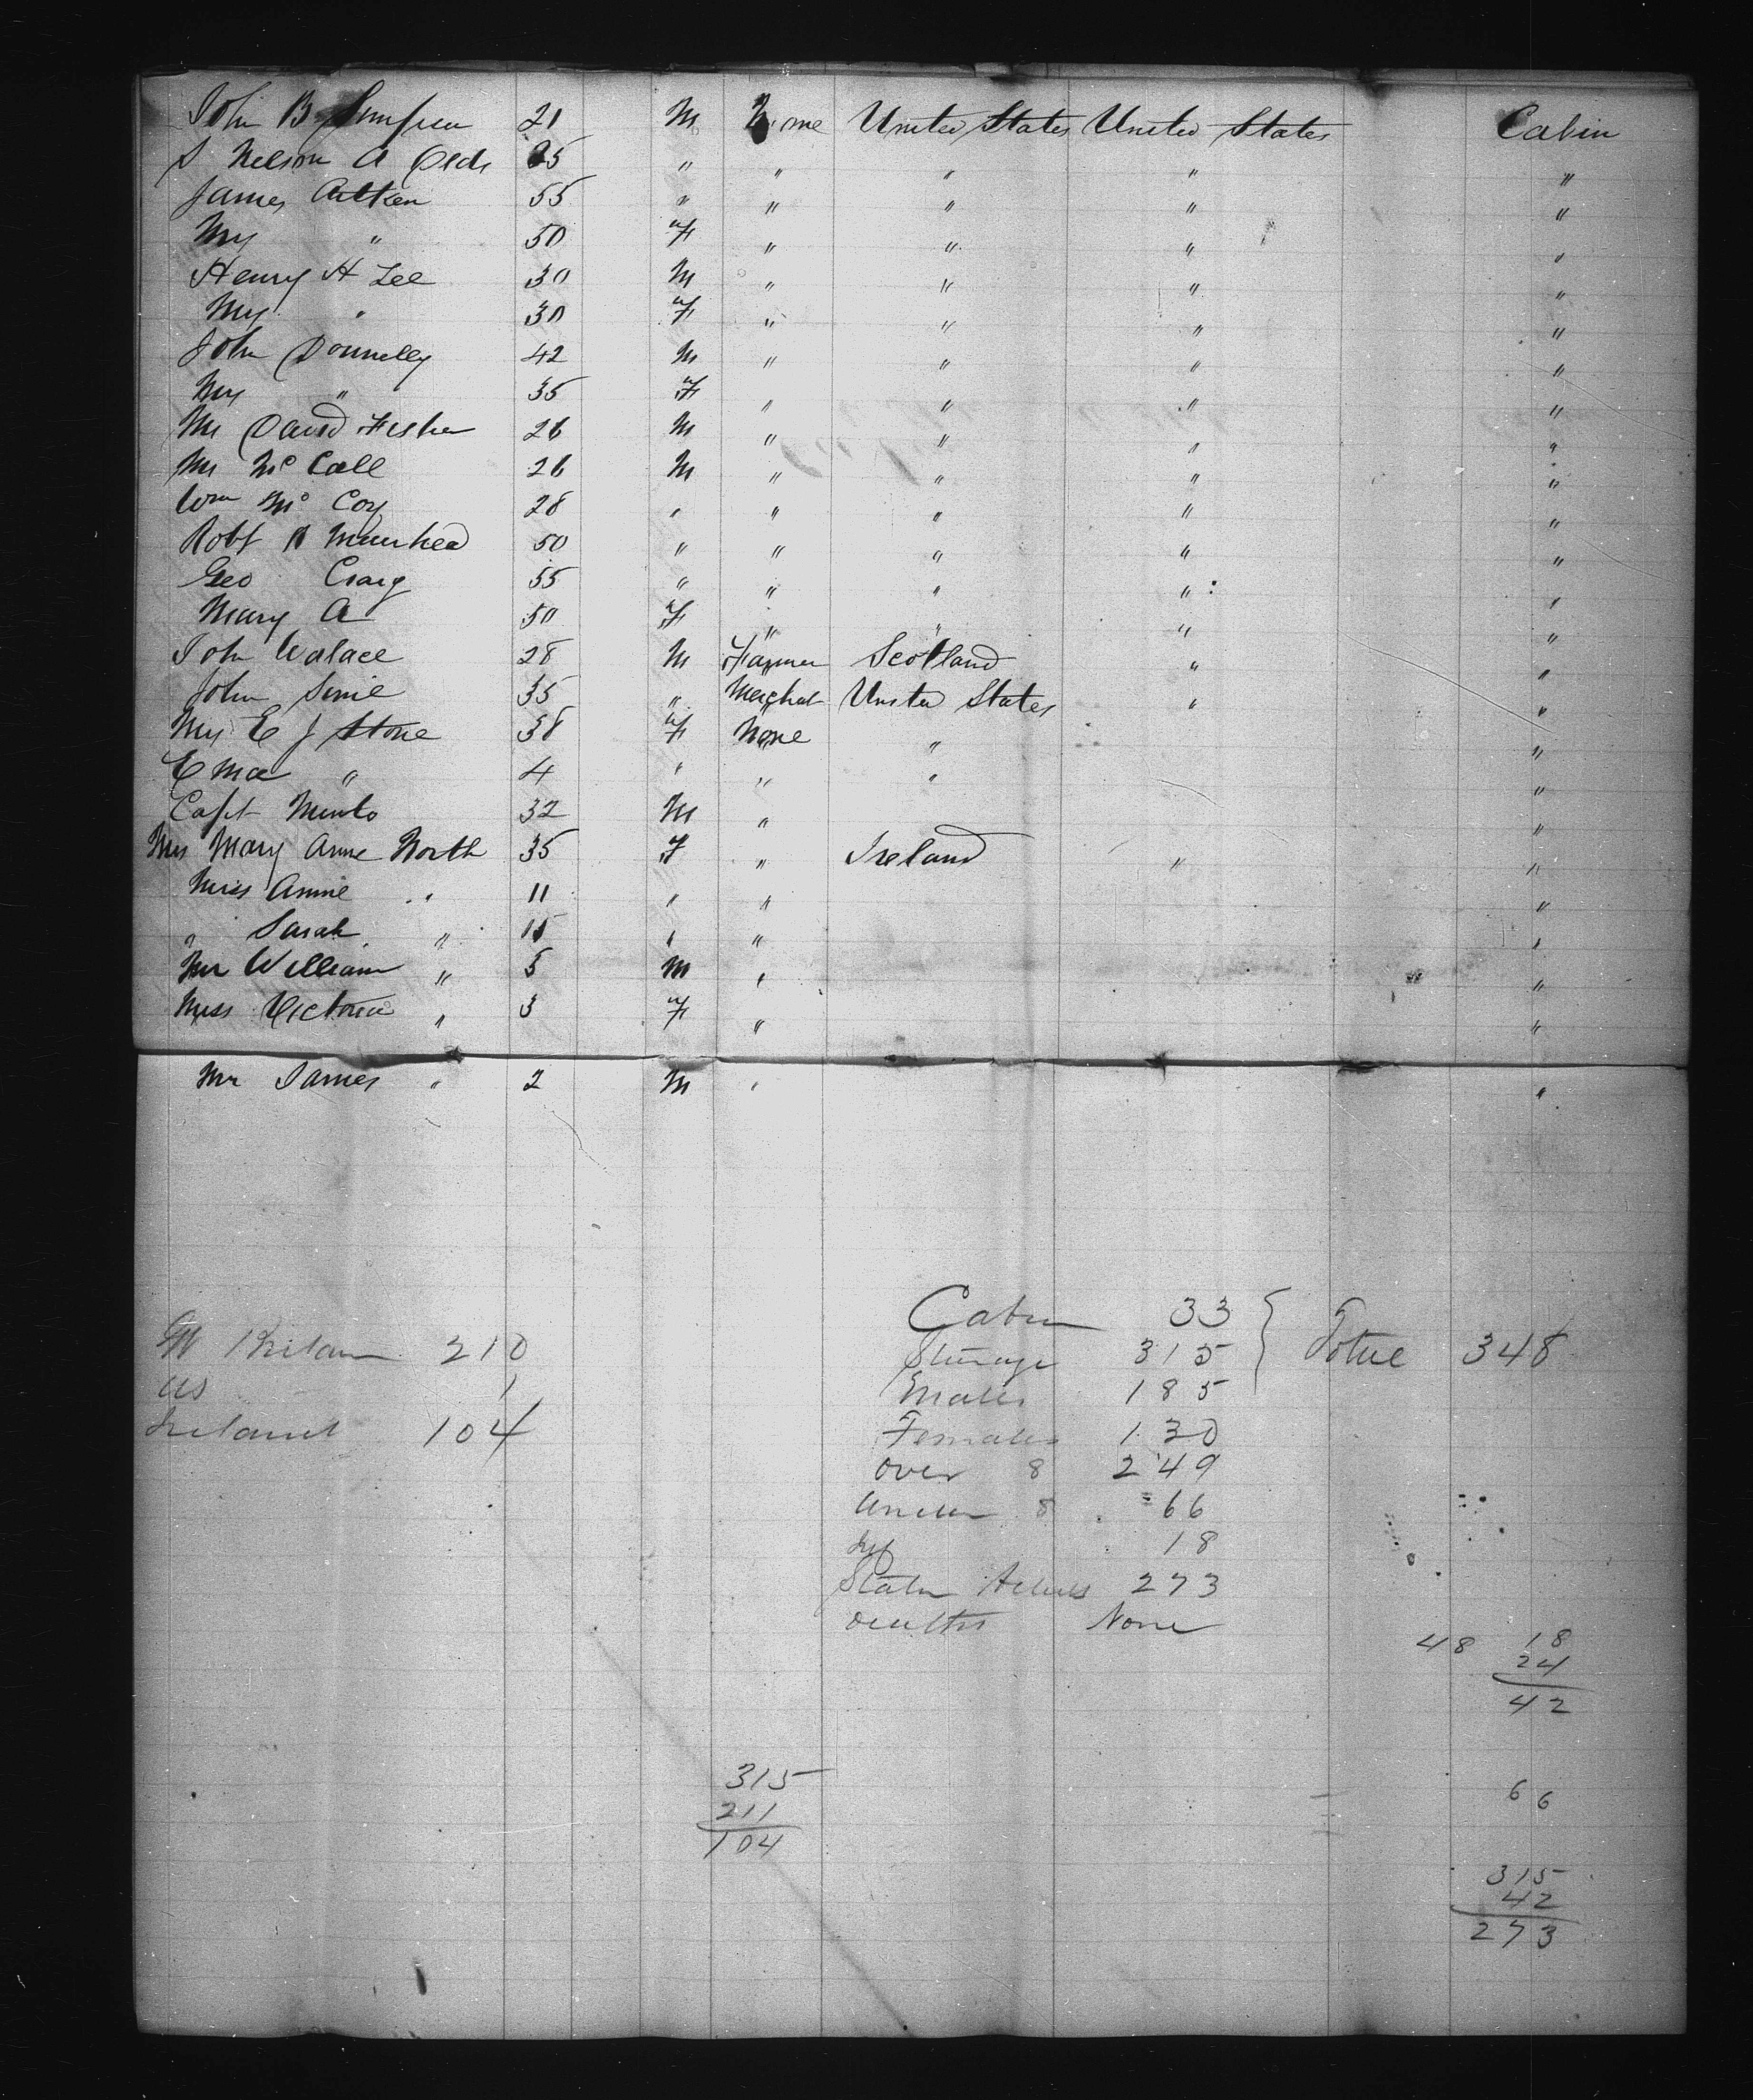 John B Simpson 21 M None United States United States Cabin
S Nelson A Olds 25 " " " " "
James Aitken 55 " " " " "
Mrs " 50 F " " " "
Henry H Lee 30 M " " " "
Mrs " 30 F " " " "
John Donnelly 42 M " " " "
Mrs " 35 F " " " "
Mr David Fisher 26 M " " " "
Mr Mc Call 26 M " " " "
Wm Mc Coy 28 " " " " "
Robt Muirhead 50 " " " " "
Geo Craig 55 " " " " "
Mary A 50 F " " " "
John Walace 28 M Farmer Scotland " "
John 35 " Merchat United States " "
Mrs E J Stone 38 F None " "
Ema " 4 " " " "
Capt Minto 32 M " "
Mrs Mary Anne North 35 F " Ireland " "
Miss Annie " 11 " " "
" Sarah " 15 " " "
Mr William " 5 M " "
Miss Victoria " 3 F " "
Mr James " 2 M " "
Cabin 33
Gt Britain 210 Sterage 315 Total 348
US 1 Males 185
Ireland 104 Females 130
Over 8 249
Under 8 66
Inf 18
Statu Adults 273
Deaths None
48 18
24
42
315
211 66
104
315
42
273